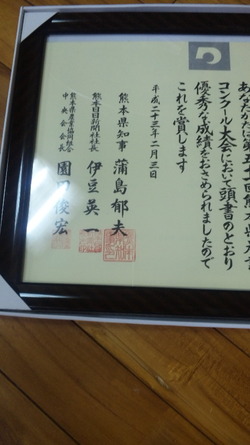 あなたがたは第五十一回熊本県
コンクール大会において頭書のとおり
優秀な成績をおさめられましたので
これを賞します
平成二十三年二月三日
熊本県知事 蒲島郁夫
熊本日日新聞社社長 伊豆英一
熊本県農業協同組合
中央会会長 園田俊宏